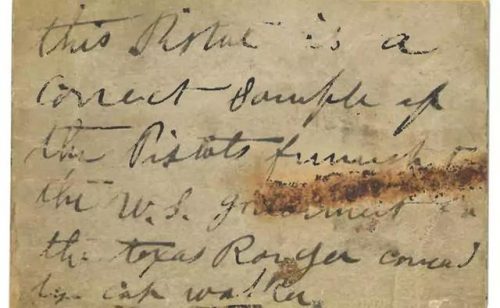 this Pistol is a
correct sample of
the Pistols furnish to
the U.S. government
the texas Ranger
by cap walker